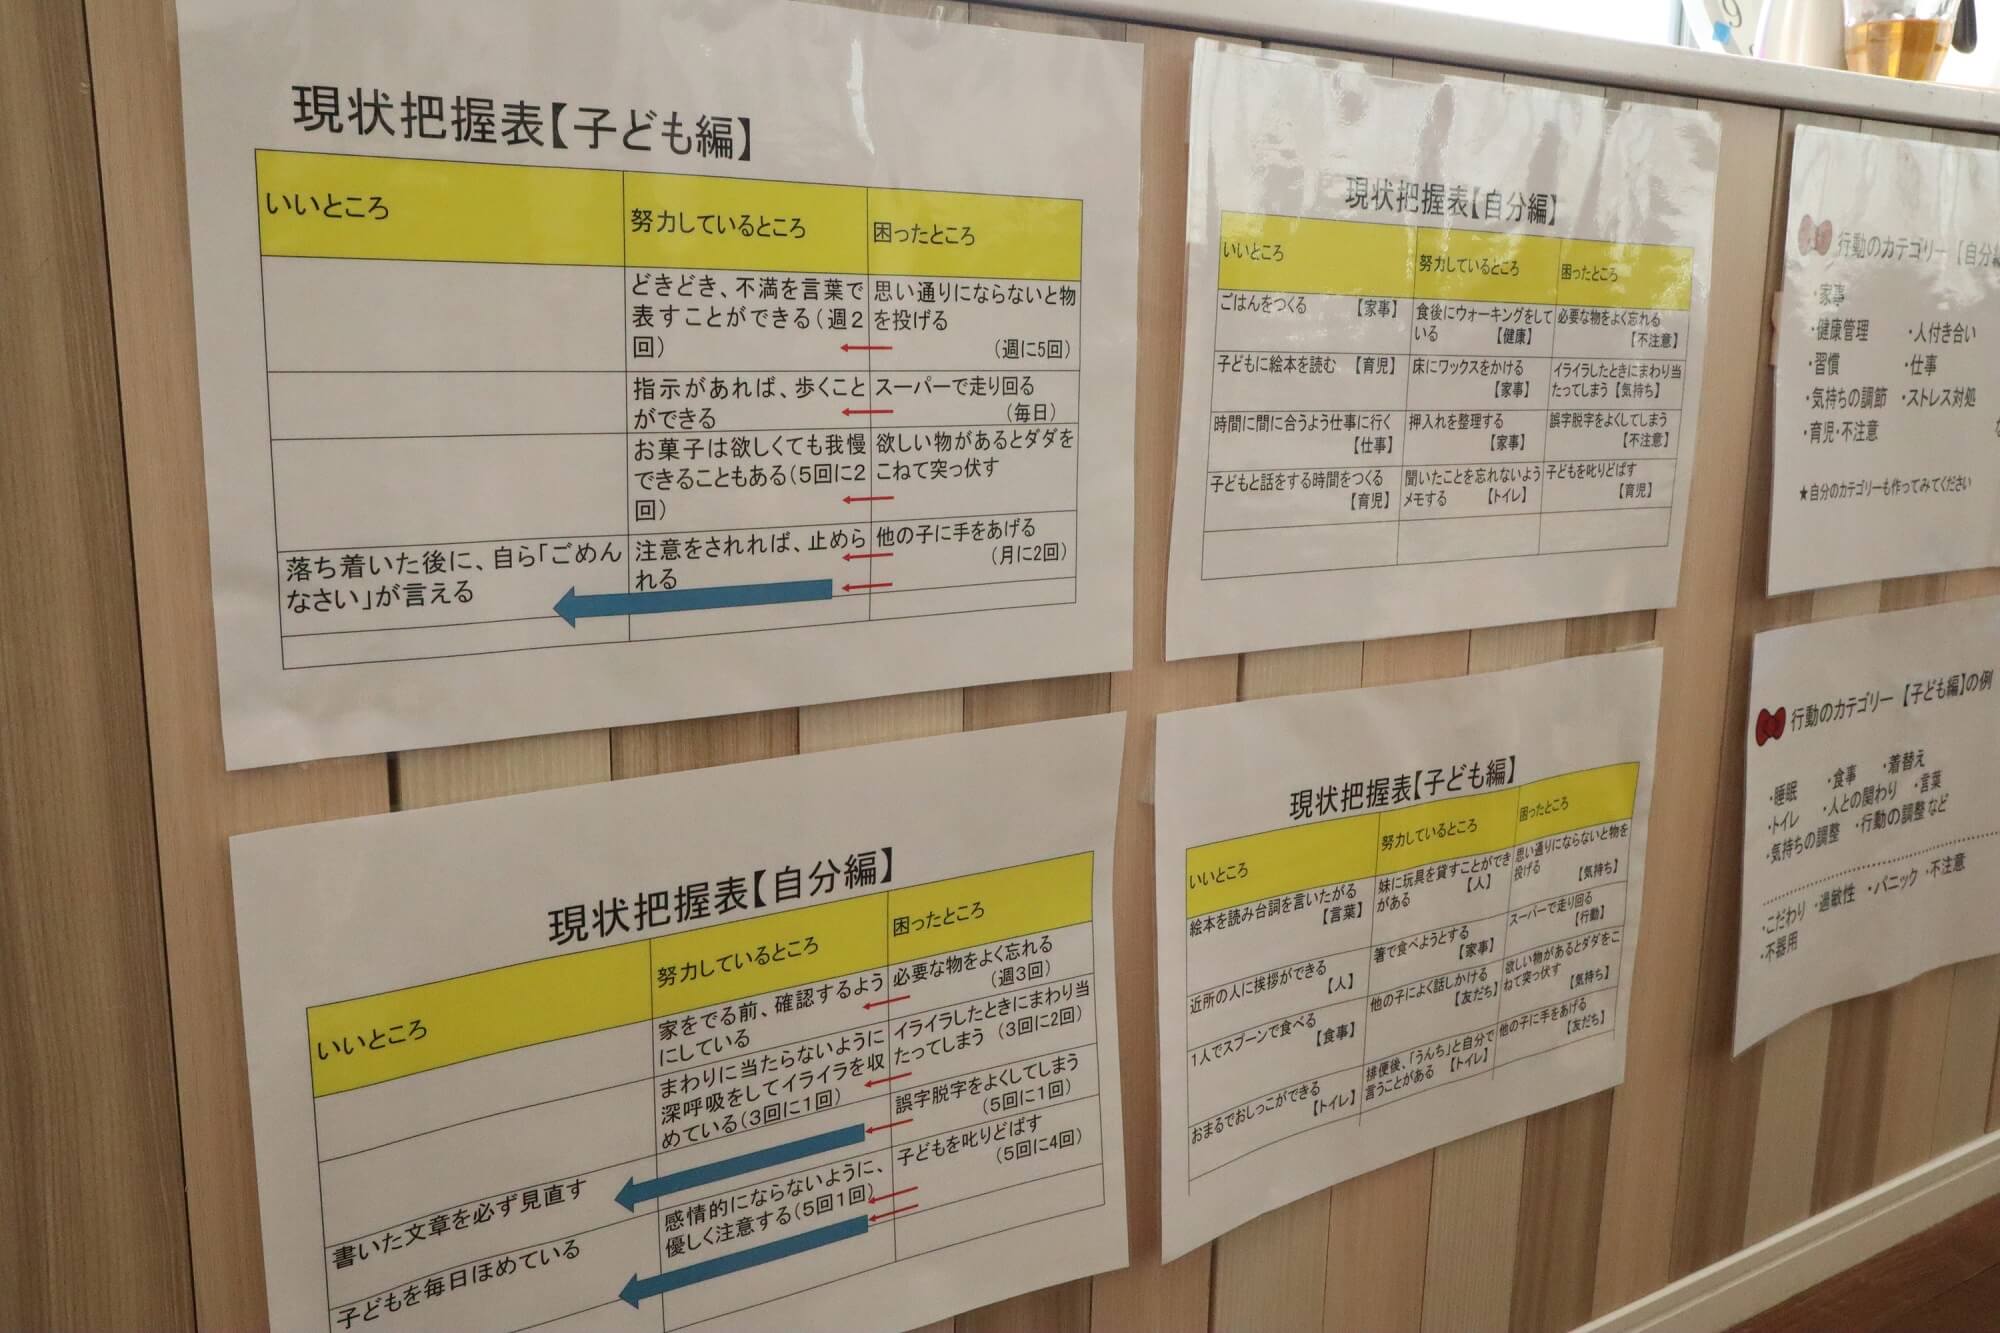 現状把握表【子ども編】
いいところ
努力しているところ
困ったところ
どきどき、不満を言葉で
表すことができる(週2
回)
思い通りにならないと物
を投げる
(週に5回)
指示があれば、歩くこと
ができる
スーパーで走り回る
(毎日)
お菓子は欲しくても我慢
できることもある(5回に2
回)
欲しい物があるとダダを
こねて突っ伏す
落ち着いた後に、自ら「ごめん
なさい」が言える
注意をされれば、止めら
れる
他の子に手をあげる
(月に2回)
現状把握表【自分編】
いいところ
努力しているところ
困ったところ
ごはんをつくる 【家事】
食後にウォーキングをして
いる 【健康】
必要な物をよく忘れる
【不注意】
子どもに絵本を読む 【育児】
床にワックスをかける
【家事】
イライラしたときにまわり当
たってしまう【気持ち】
時間に間に合うよう仕事に行く
【仕事】
押入れを整理する
【家事】
誤字脱字をよくしてしまう
【不注意】
子どもと話をする時間をつくる
【育児】
聞いたことを忘れないよう
メモする 【トイレ】
子どもを叱りどばす
【育児】
行動のカテゴリー【自分編
・家事
・健康管理 ・人付き合い
・習慣 ・仕事
・気持ちの調節 ・ストレス対処
・育児・不注意
★自分のカテゴリーも作ってみてください
現状把握表【自分編】
いいところ
努力しているところ
困ったところ
家をでる前、確認するよう
にしている
必要な物をよく忘れる
(週3回)
まわりに当たらないように
深呼吸をしてイライラを収
めている(3回に1回)
イライラしたときにまわり当
たってしまう (3回に2回)
書いた文章を必ず見直す
誤字脱字をよくしてしまう
(5回に1回)
子どもを毎日ほめている
感情的にならないように、
優しく注意する(5回1回)
子どもを叱りどばす
(5回に4回)
現状把握表【子ども編】
いいところ
努力しているところ
困ったところ
絵本を読み台詞を言いたがる
【言葉】
妹に玩具を貸すことができ
がある 【人】
思い通りにならないと物を
投げる 【気持ち】
近所の人に挨拶ができる
【人】
箸で食べようとする
【家事】
スーパーで走り回る
【行動】
1人でスプーンで食べる
【食事】
他の子によく話しかける
【友だち】
欲しい物があるとダダをこ
ねて突っ伏す 【気持ち】
おまるでおしっこができる
【トイレ】
排便後、「うんち」と自分で
言うことがある 【トイレ】
他の子に手をあげる
【友だち】
行動のカテゴリー【子ども編】の例
・睡眠 ・食事 ・着替え
・トイレ ・人との関わり ・言葉
・気持ちの調整 ・行動の調整 など
・こだわり ・過敏性 ・パニック ・不注意
・不器用